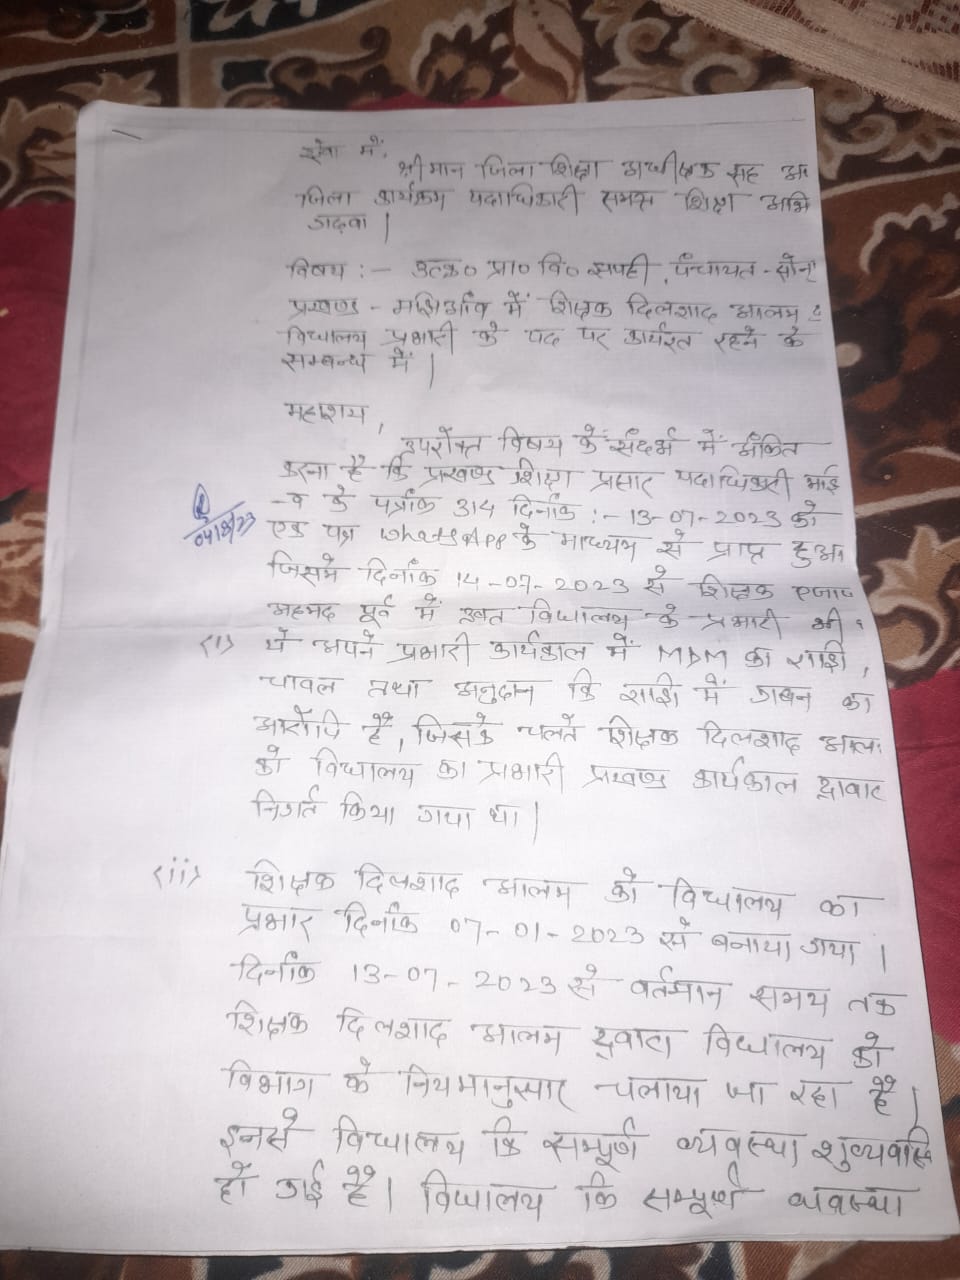 सेवा में,
श्रीमान जिला शिक्षा अधीक्षक सह अ
जिला कार्यक्रम पदाधिकारी समग्र शिक्षा अभि
गढ़वा |
विषय :- उत्क्र० प्रा० वि० सपही, पंचायत - सोन
प्रखण्ड - मझिआँव में शिक्षक दिलशाद आलम
विधालय प्रभारी के पद पर कार्यरत रहने के
सम्बन्ध में |
महाशय,
उपरोक्त विषय के संदर्भ में अंकित
करना है कि प्रखण्ड शिक्षा प्रसार पदाधिकारी
- व के पत्रांक 314 दिनांक :- 13-07-2023 को
04/8/23
एक पत्र WhatsApp के माध्यम से प्राप्त हुआ
जिसमे दिनांक 14-07-2023 से शिक्षक एजाज
अहमद पूर्व में उक्त विधालय के प्रभारी थी
(i) ये अपने प्रभारी कार्यकाल में MDM का राशि,
चावल तथा अनुदान कि राशि में गबन का
आरोपि है, जिसके चलते शिक्षक दिलशाद आल
को विधालय का प्रभारी प्रखण्ड कार्यकाल द्वावार
निर्गत किया गया था |
(ii) शिक्षक दिलशाद आलम को विधालय का
प्रभार दिनांक 07-01-2023 से बनाया गया |
दिनांक 13-07-2023 से वर्तमान समय तक
शिक्षक दिलशाद आलम द्वारा विधालय को
विभाग के नियमानुसार चलाया जा रहा है |
इनसे विधालय कि सम्पूर्ण व्यवस्था शुव्यवस्थि
हो गई है | विधालय कि सम्पूर्ण व्यवस्था